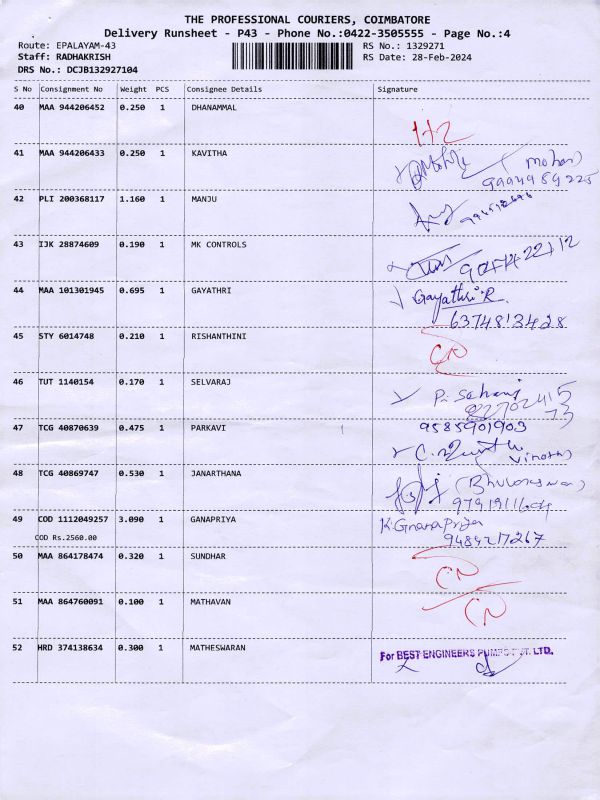 THE PROFESSIONAL COURIERS, COIMBATORE
Delivery Runsheet - P43 - Phone No.:0422-3505555 - Page No.:4
Route: EPALAYAM-43 RS No.: 1329271
Staff: RADHAKRISH RS Date: 28-Feb-2024
DRS No.: DCJB132927104
S No Consignment No Weight PCS Consignee Details Signature
40 MAA 944206452 0.250 1 DHANAMMAL
41 MAA 944206433 0.250 1 KAVITHA
(Mohan)
9994989225
42 PLI 200368117 1.160 1 MANJU
43 IJK 28874609 0.190 1 MK CONTROLS
44 MAA 101301945 0.695 1 GAYATHRI
Gayathri R.
6374813428
45 STY 6014748 0.210 1 RISHANTHINI
CN
46 TUT 1140154 0.170 1 SELVARAJ
47 TCG 40870639 0.475 1 PARKAVI 9585901903
48 TCG 40869747 0.530 1 JANARTHANA
49 COD 1112049257 3.090 1 GANAPRIYA K.GnanaPriya
COD Rs.2560.00 9484217267
50 MAA 864178474 0.320 1 SUNDHAR
CN
51 MAA 864760091 0.100 1 MATHAVAN CN
52 HRD 374138634 0.300 1 MATHESWARAN For BEST ENGINEERS PUMPS PVT. LTD.